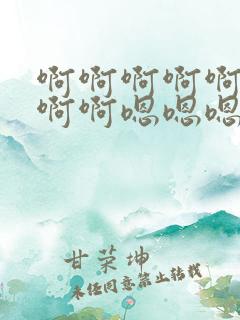 啊啊啊啊啊
啊啊嗯嗯嗯
甘菜坤
未经同意禁止转载